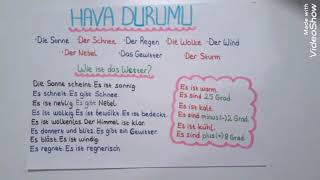 HAVA DURUMU
· Die Sonne · Der Schnee · Der Regen · Die Wolke · Der Wind
· Der Nebel · Das Gewitter · Der Sturm
Wie ist das Wetter?
Die Sonne scheint. Es ist sonnig
Es schneit. Es gibt Schnee.
Es ist neblig. Es gibt Nebel.
Es ist wolkig. Es ist bewölkt. Es ist bedeckt.
Es ist wolkenlos. Der Himmel ist klar.
Es donnert und blitz. Es gibt ein Gewitter.
Es bläst. Es ist windig.
Es regnet. Es ist regnerisch
Es ist warm.
Es sind 25 Grad.
Es ist kalt.
Es sind minus(-)2 Grad.
Es ist kühl.
Es sind plus(+)8 Grad.
Made with
VideoShow